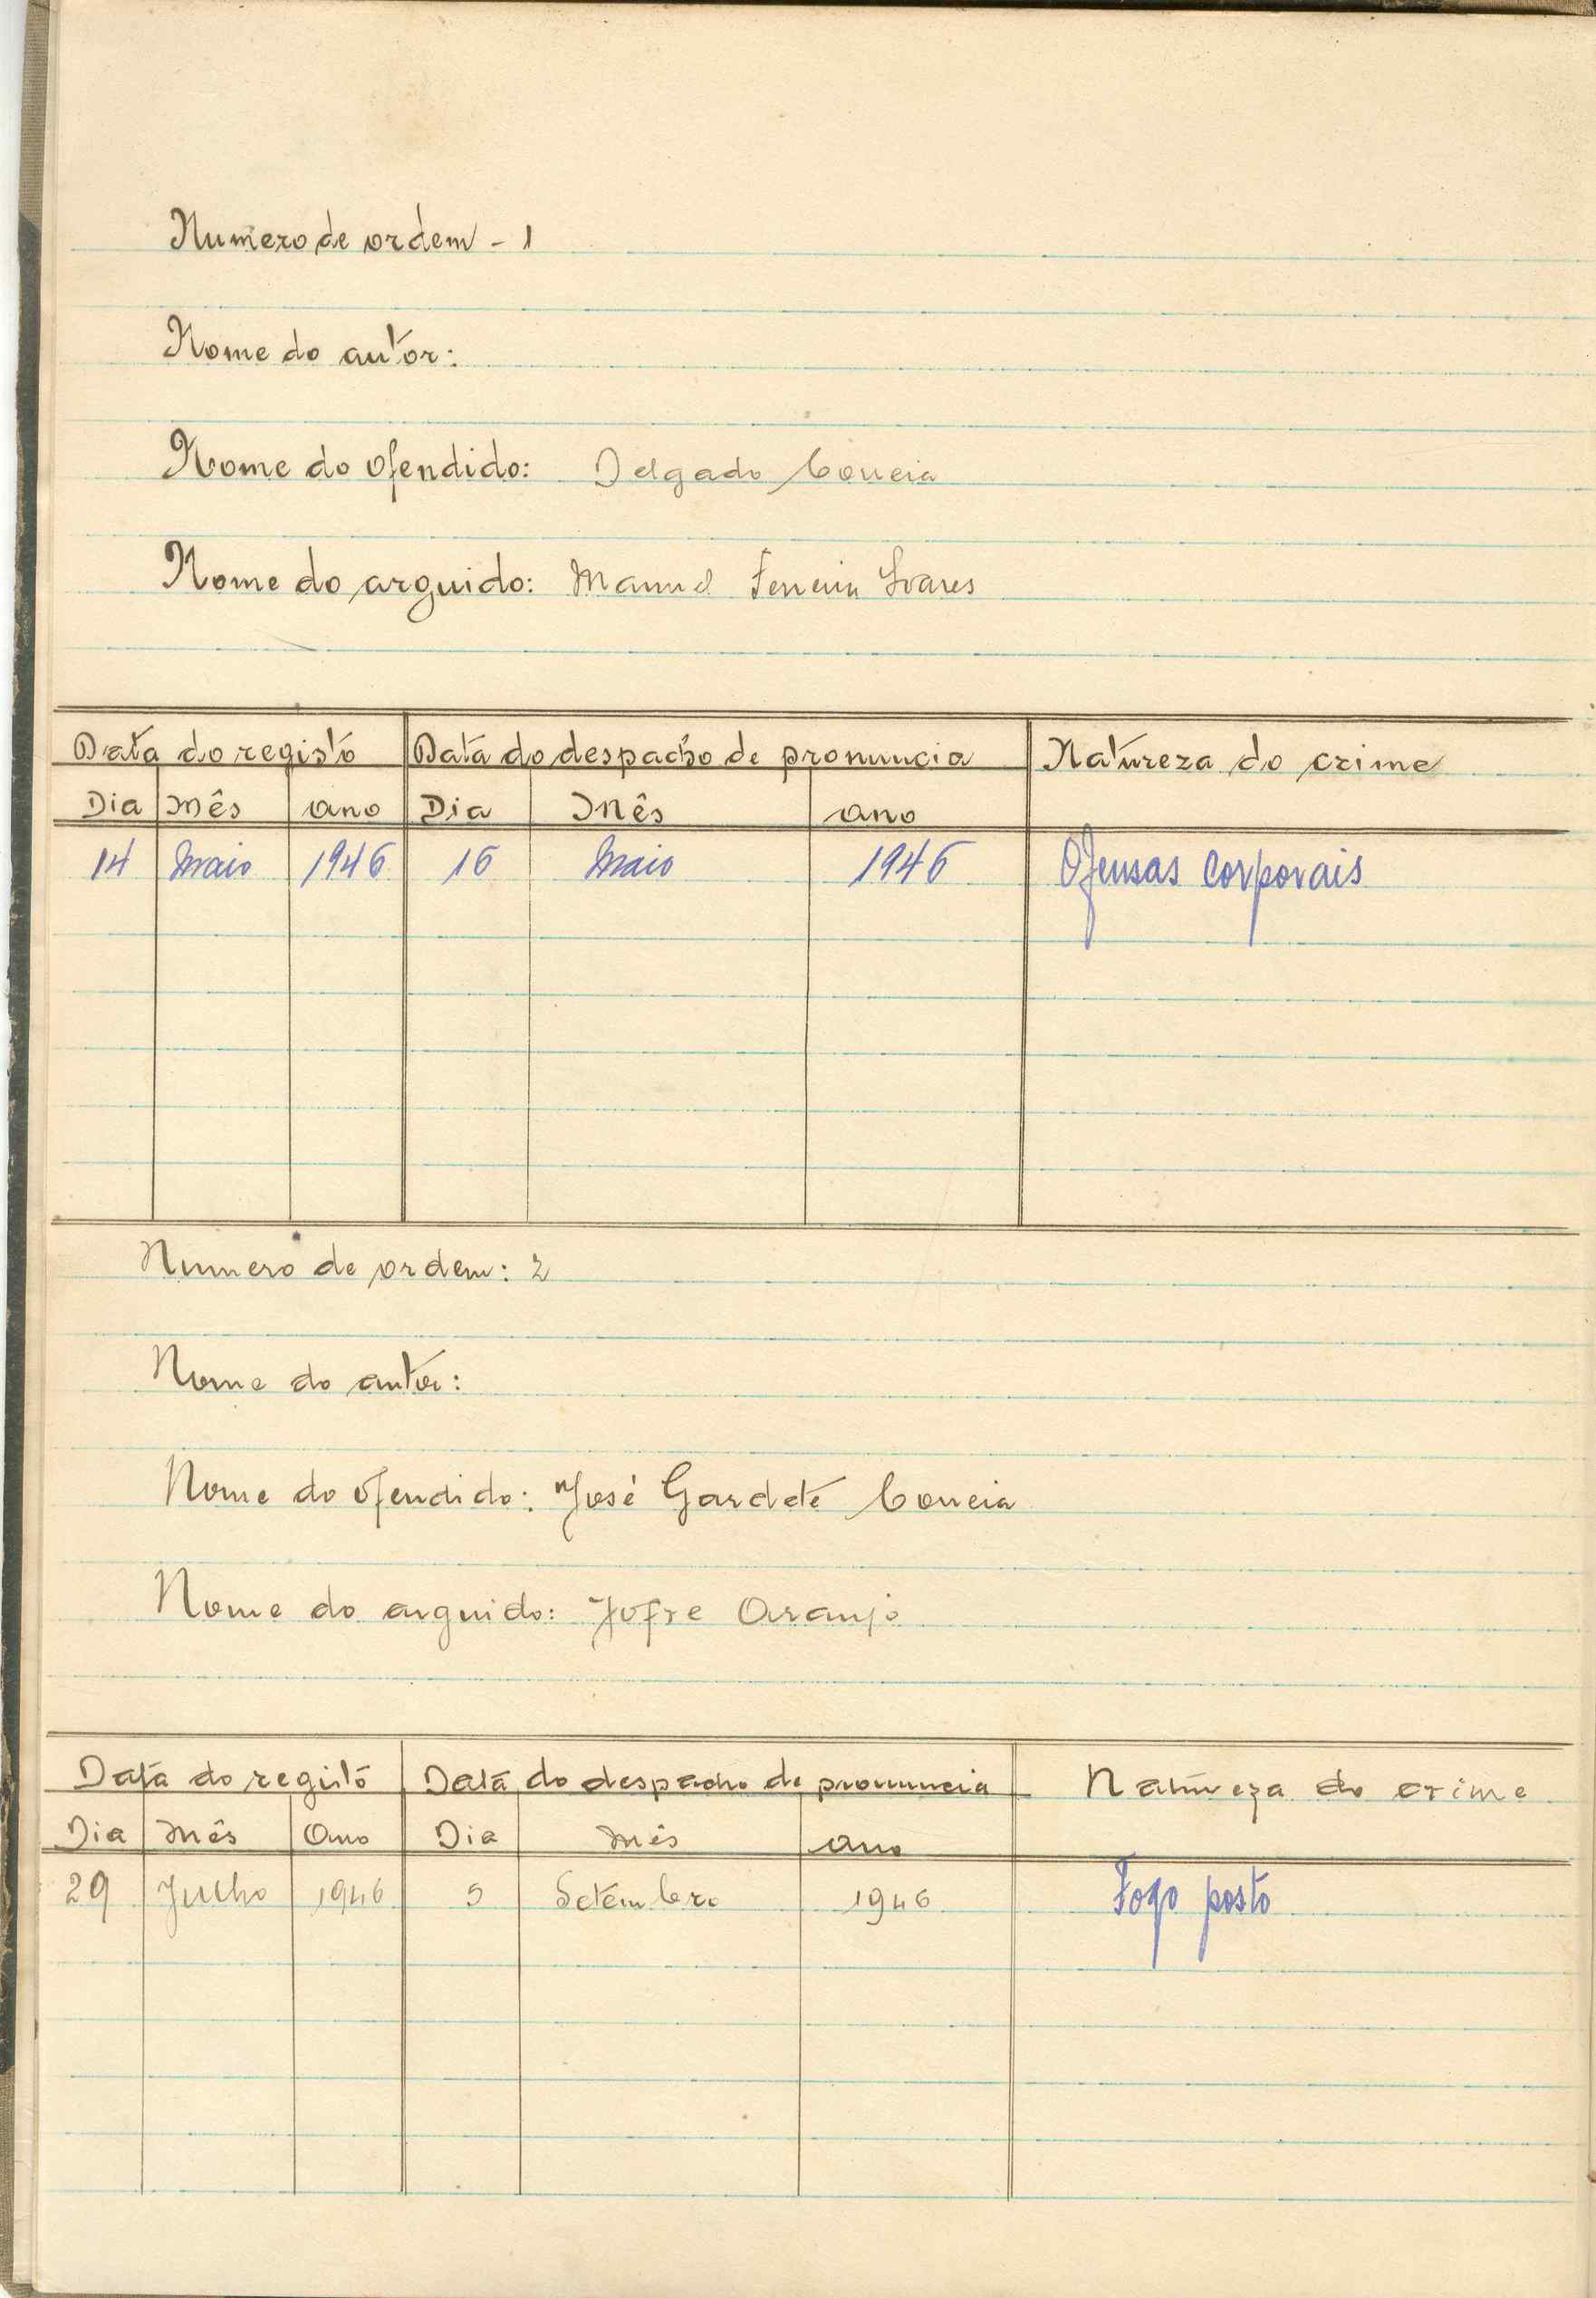 Numero de ordem - 1
Nome do autor:
Nome do ofendido: Delgado Correia
Nome do arguido: Manuel Ferreira Soares
Data do registo Data do despacho de pronuncia Natureza do crime
Dia Mês ano Dia Mês ano
14 Maio 1946 16 Maio 1946 Ofensas corporais
Numero de ordem: 2
Nome do autor:
Nome do ofendido: José Gardete Correia
Nome do arguido: Jofre Araujo
Data do registo Data do despacho de pronuncia Natureza do crime
Dia Mês Ano Dia Mês ano
29 Julho 1946 5 Setembro 1946 Fogo posto